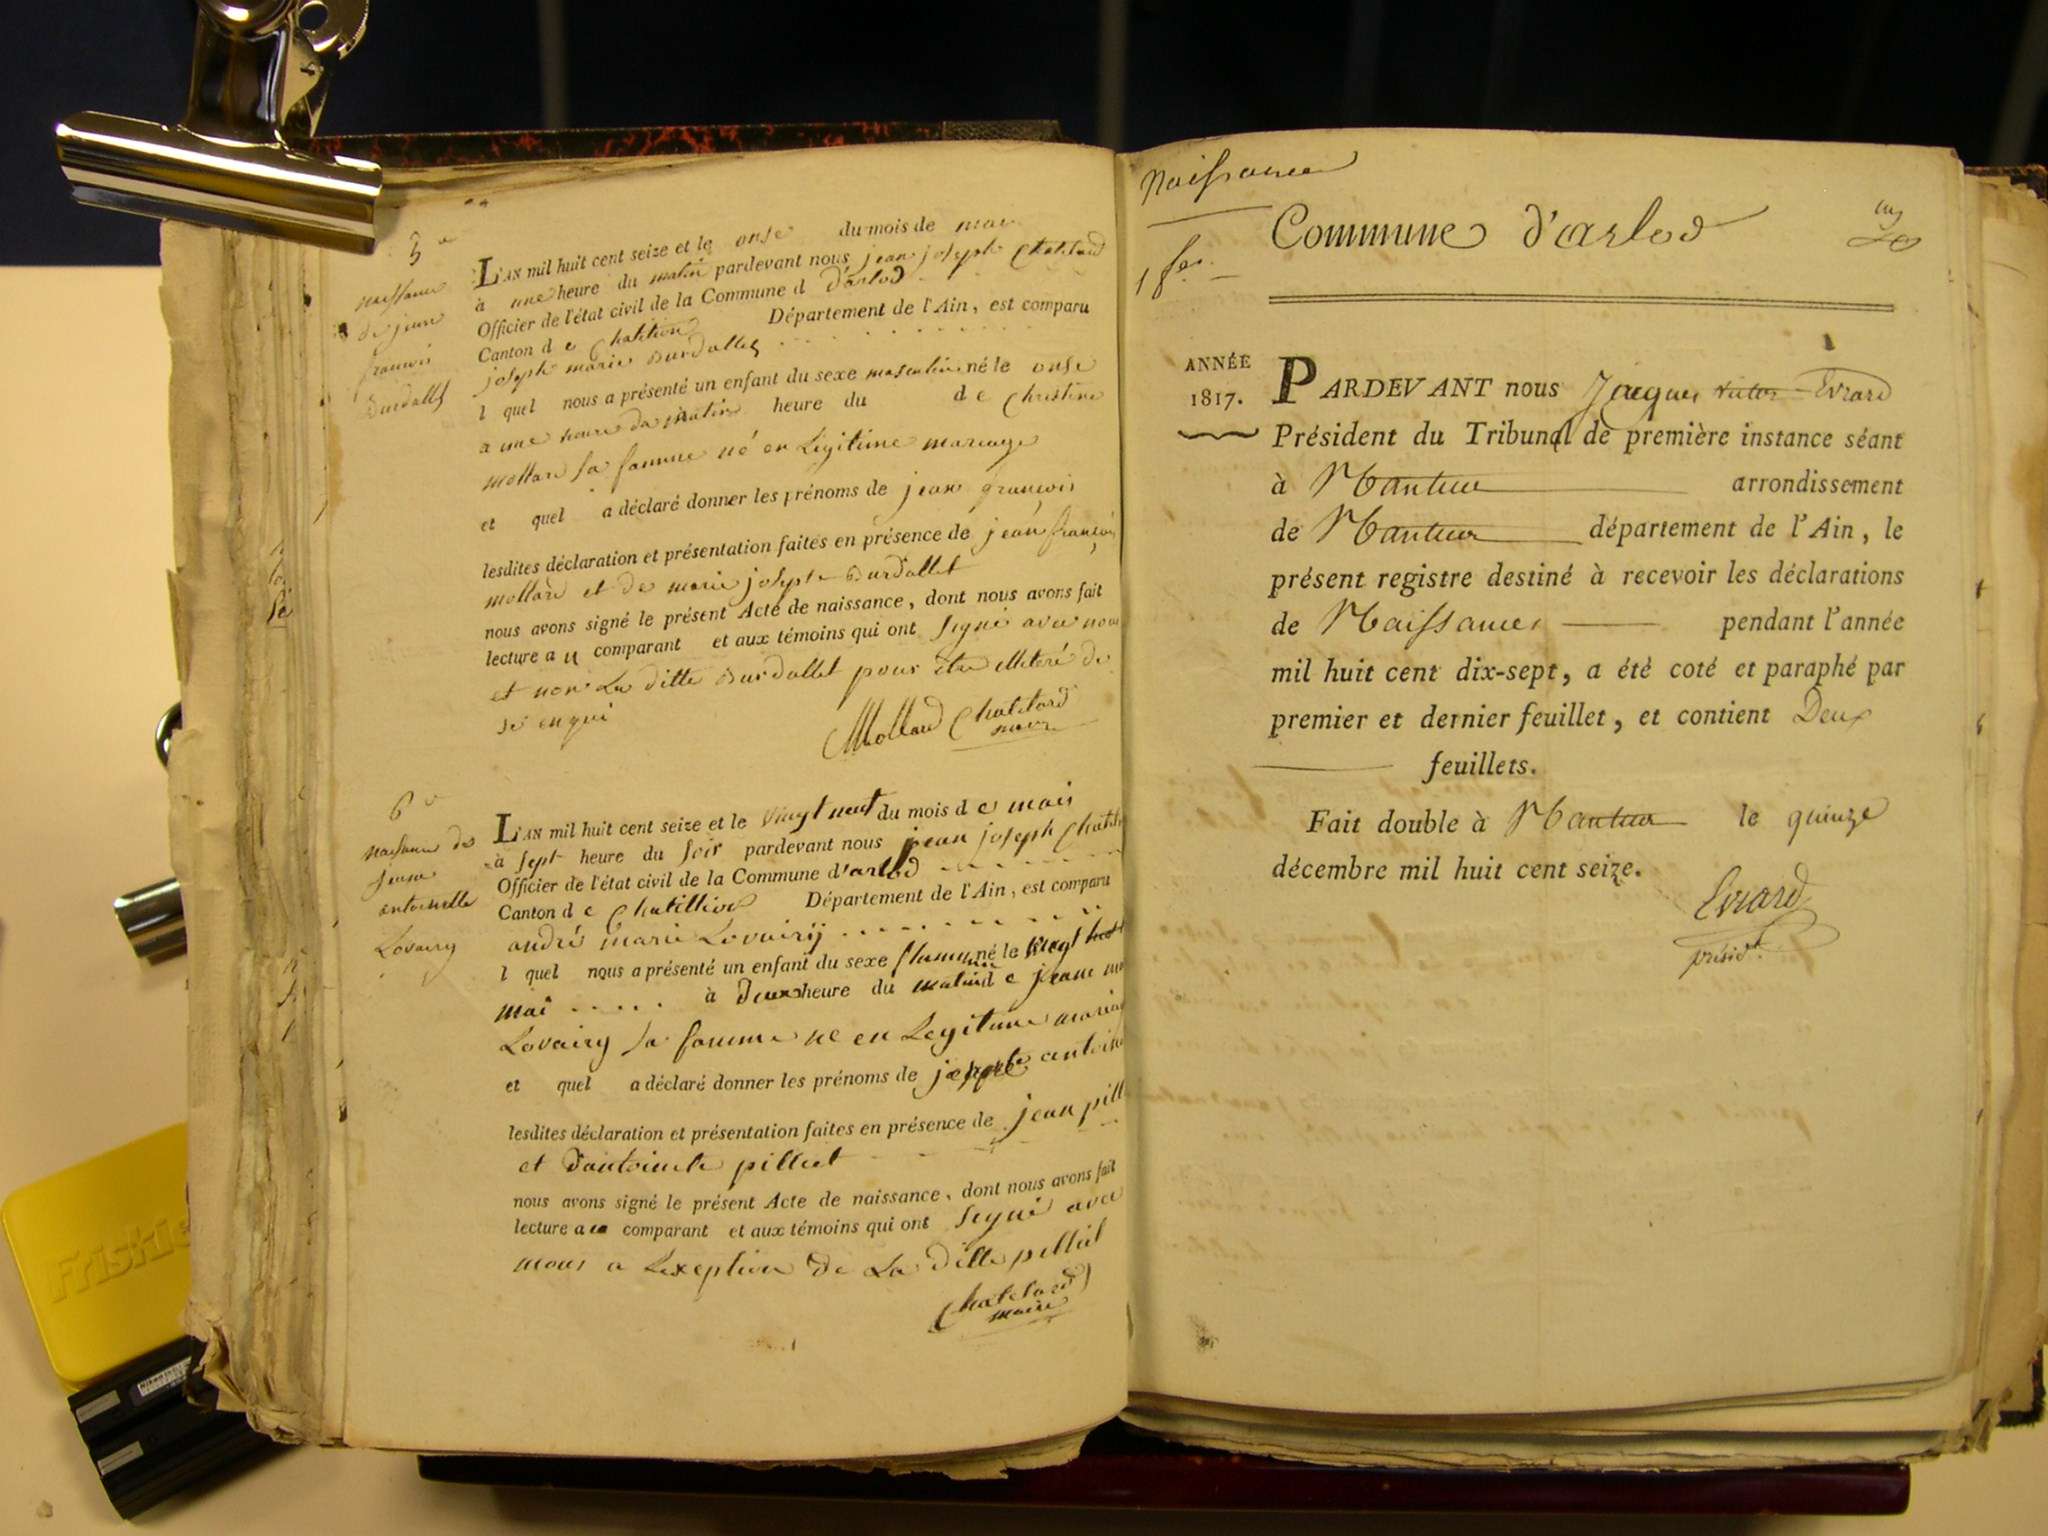 5e
naissance
de jean
francois
Burdallet
L'AN mil huit cent seize et le onse du mois de mai
à une heure du matin pardevant nous jean joseph Chatelard
Officier de l'état civil de la Commune d d'arlod
Canton d e Chatillion Département de l'Ain, est comparu
joseph marie Burdallet
l quel nous a présenté un enfant du sexe masculin né le onse
a une heure du matin heure du d e Christine
mollard sa famme né en Légitime mariage
et quel a déclaré donner les prénoms de jean francois
lesdites déclaration et présentation faites en présence de jean francois
mollard et de marie joseph Burdallet
nous avons signé le présent Acte de naissance, dont nous avons fait
lecture a u comparant et aux témoins qui ont signé avec nous
et non La ditte Burdallet pour être illeteré de
se enqui
Mollard Chatelard
maire
6e
naissance de
jeanne
antoinette
Lovairy
L'AN mil huit cent seize et le vingt neuf du mois d e mais
à sept heure du soir pardevant nous jean joseph Chatel
Officier de l'état civil de la Commune d'arlod
Canton d e Chatillion Département de l'Ain, est comparu
andré marie Lovairy
l quel nous a présenté un enfant du sexe né le vingt
mai à deux heure du matin d e jeane
Lovairy sa famme né en Legitime mariage
et quel a déclaré donner les prénoms de
lesdites déclaration et présentation faites en présence de jean pill
et d'antoinete pilliet
nous avons signé le présent Acte de naissance, dont nous avons fait
lecture a comparant et aux témoins qui ont signé avec
nous a Lexeption de La ditte pilliet
Chatelard
maire
Naissance
1 fer
Commune d'arlod
ANNÉE
1817.
PARDEVANT nous Jacques Victor Evrard
Président du Tribunal de première instance séant
à Nantua arrondissement
de Nantua département de l'Ain, le
présent registre destiné à recevoir les déclarations
de Naissances pendant l'année
mil huit cent dix-sept, a été coté et paraphé par
premier et dernier feuillet, et contient Deux
feuillets.
Fait double à Nantua le quinze
décembre mil huit cent seize.
Evrard
présidt.
Friskie